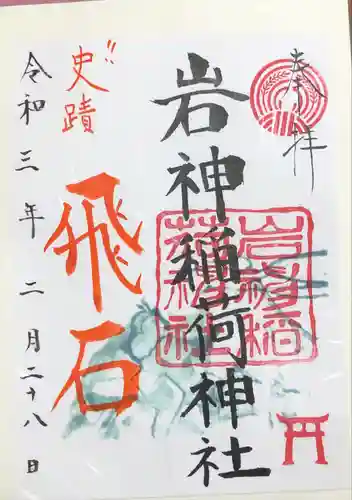 奉拝
岩神稲荷神社
史蹟
飛石
令和三年二月二十八日
岩神稲
荷神社